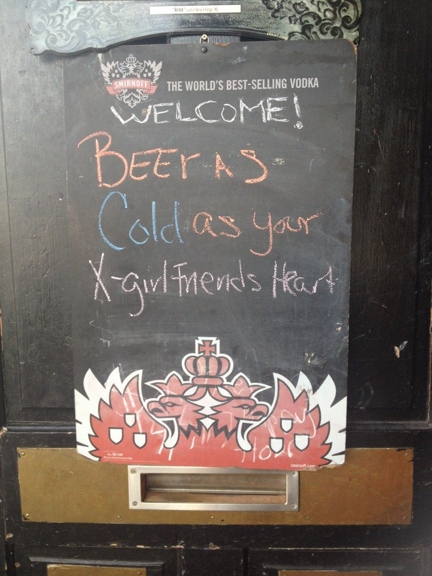 SMIRNOFF
THE WORLD'S BEST-SELLING VODKA
WELCOME!
BEEr AS
Cold as your
X-girlfriends Heart